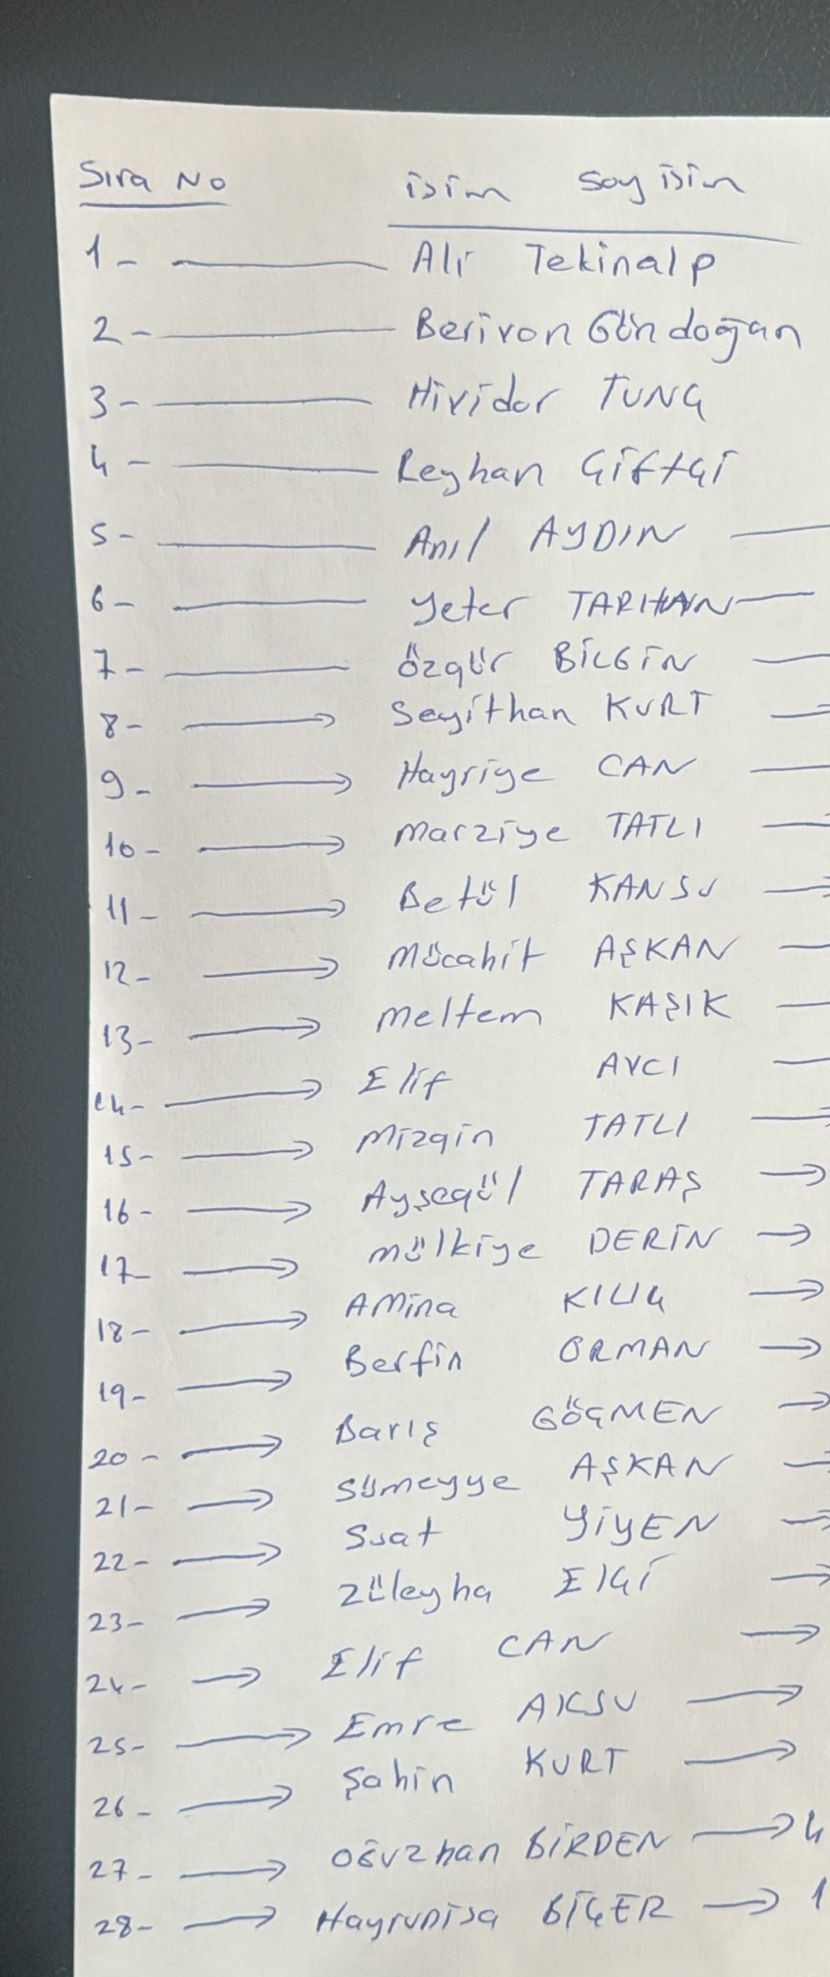 Sıra No isim Soy isim
1- Ali Tekinalp
2- Berivan Gündoğan
3- Hividar TUNÇ
4- Reyhan Çiftçi
5- Anıl AYDIN
6- Yeter TARHAN
7- Özgür BİLGİN
8- Seyithan KURT
9- Hayriye CAN
10- Marziye TATLI
11- Betül KANSU
12- Mücahit AŞKAN
13- Meltem KAŞIK
14- Elif AVCI
15- Mizgin TATLI
16- Ayşegül TARAŞ
17- Mülkiye DERİN
18- Amina KILIÇ
19- Berfin ORMAN
20- Barış GÖÇMEN
21- Sümeyye AŞKAN
22- Suat YİYEN
23- Züleyha ELÇİ
24- Elif CAN
25- Emre AKSU
26- Şahin KURT
27- Oğuzhan BİRDEN 4
28- Hayrunisa BİÇER 1